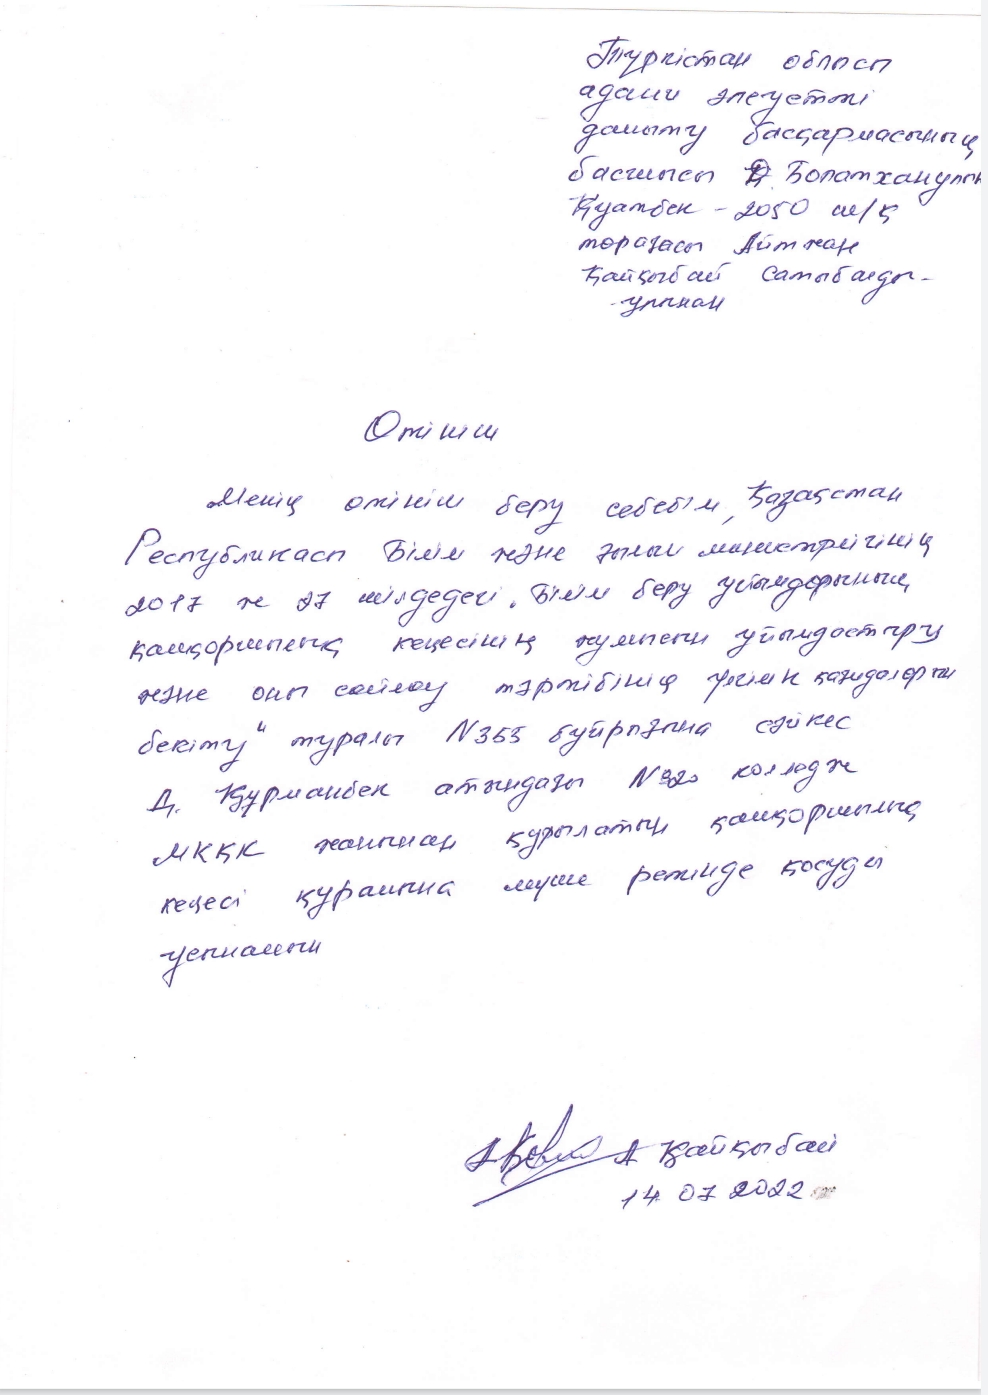 Түркістан облысы
адами әлеуетті
дамыту басқармасының
басшысы Д. Болатханұлы
Қуатбек - 2050 ш/қ
төрағасы Айтжан
Қайқыбай Сатыбалды-
ұлынан
Өтініш
Менің өтініш беру себебім, Қазақстан
Республикасы Білім және ғылым министрлігінің
2017 ж 27 шілдедегі "Білім беру ұйымдарының
қамқоршылық кеңесінің жұмысын ұйымдастыру
және оны сайлау тәртібінің үлгілік қағидаларын
бекіту" туралы N355 бұйрығына сәйкес
Д. Құрманбек атындағы N20 колледж
МКҚК жанынан құрылатын қамқоршылық
кеңесі құрамына мүше ретінде қосуды
ұсынамын
А Қайқыбай
14 07 2022 ж